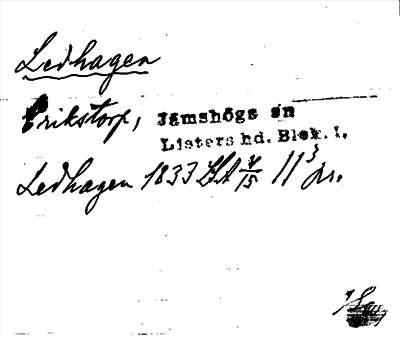 Ledhagen
Erikstorp, Jämshögs sn
Listers hd. Blek. l.
Ledhagen 1833 LSA 4/15 11³ jr.